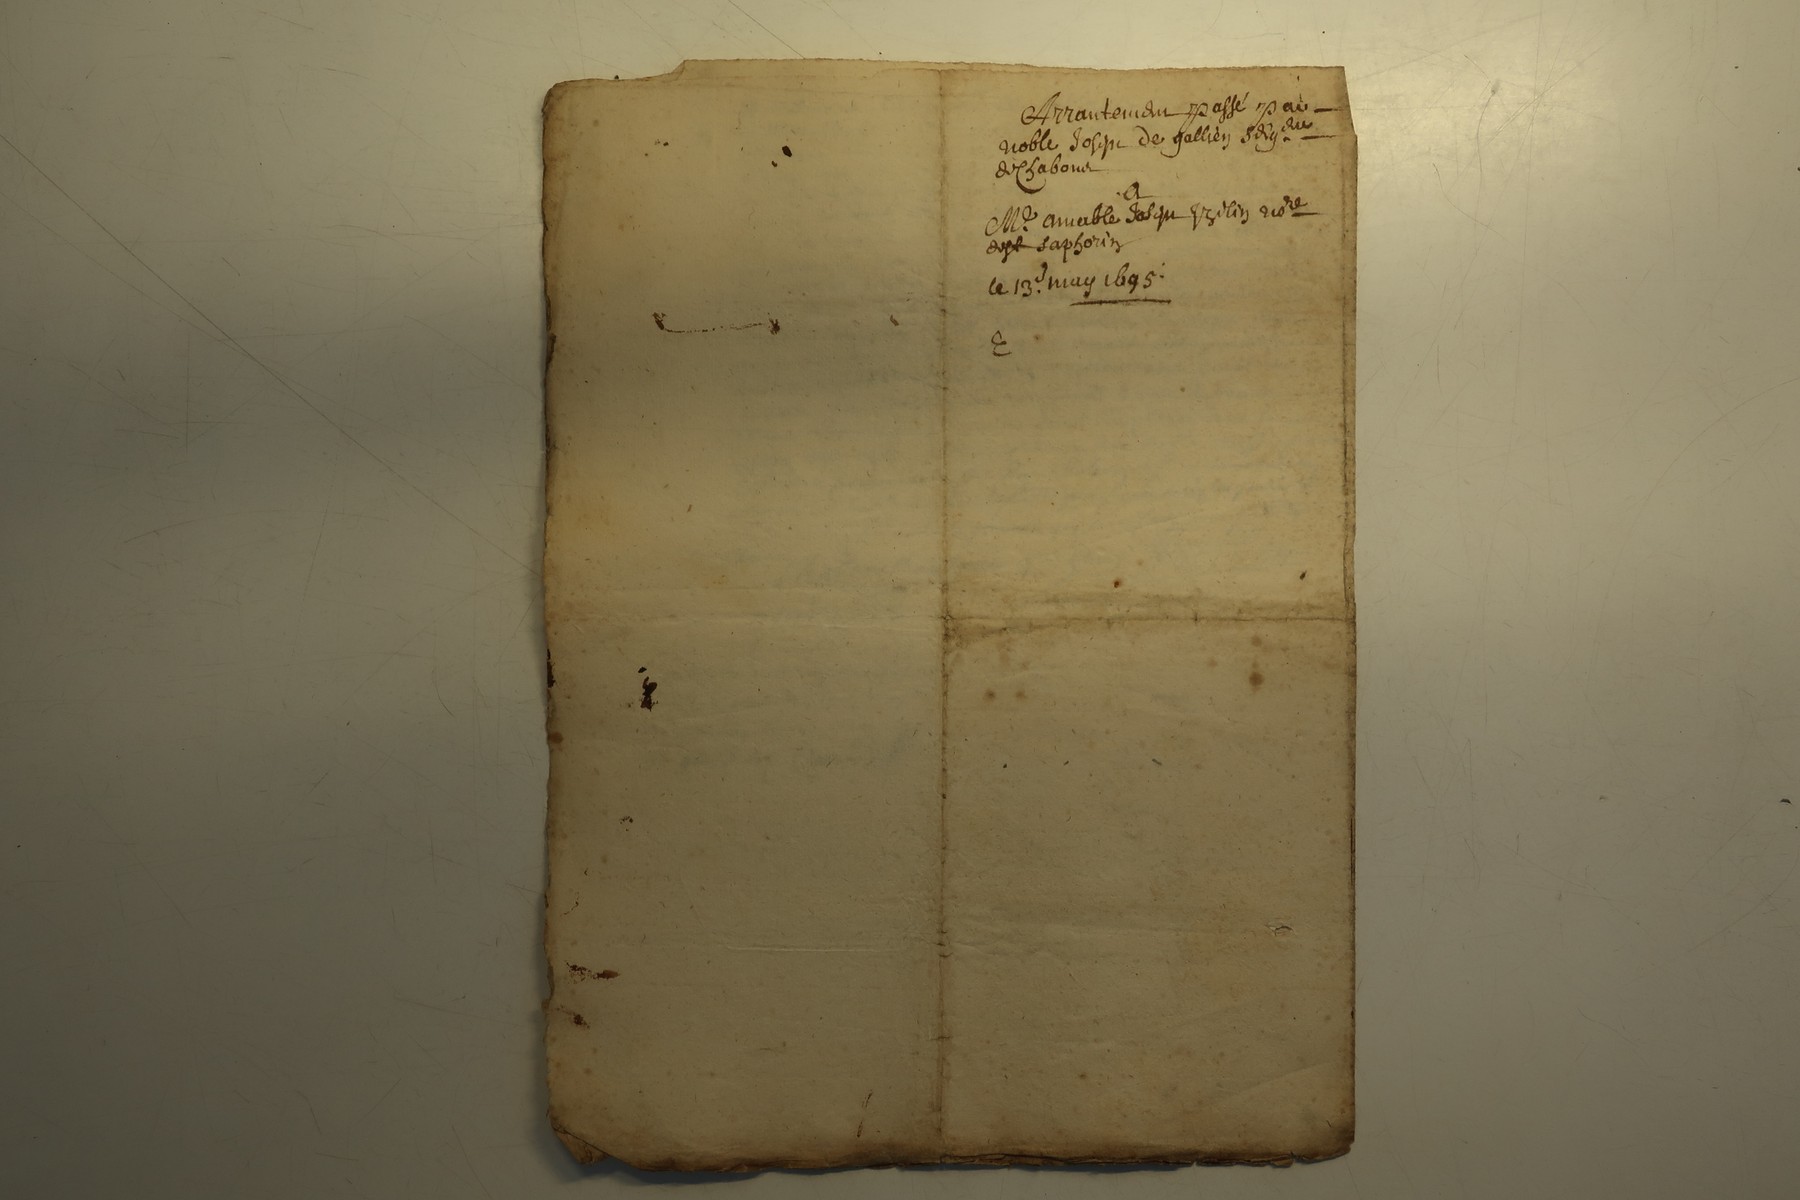 Arrantemen passé par
noble Joseph de gallien seigr
de Chabons
A
Mr. amable Joseph no.re
de st saphorin
le 13.e may 1695.
E